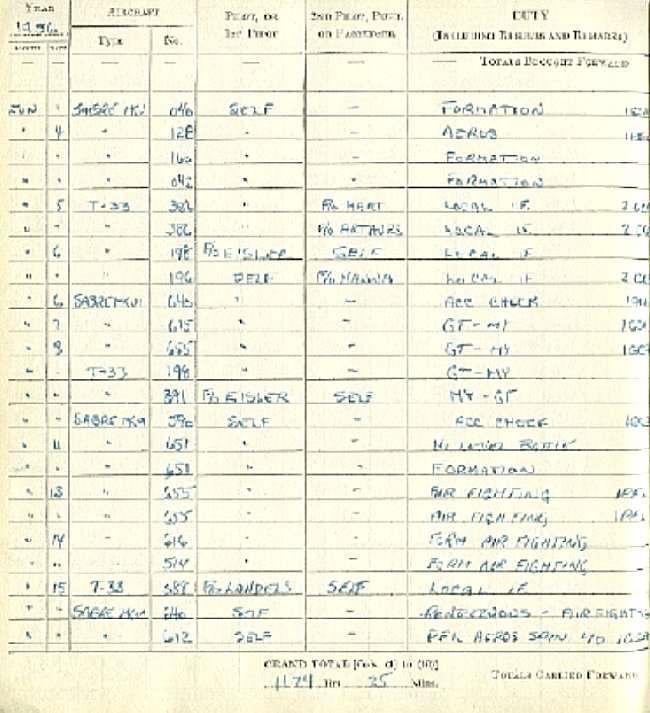 YEAR AIRCRAFT PILOT, OR 2ND PILOT, PUPIL DUTY
1956 Type No. 1ST PILOT OR PASSENGER (INCLUDING RESULTS AND REMARKS)
— — — — — TOTALS BROUGHT FORWARD
JUN " SABRE 040 SELF - FORMATION
" 4 " 128 " - AEROS
" " " 160 " - FORMATION
" " " 042 " - FORMATION
" 5 T-33 F/O HART LOCAL I.F.
" " " 386 " F/O LOCAL I.F.
" 6 " 198 F/O EISLER SELF LOCAL I.F.
" " " 196 SELF LOCAL I.F.
" 6 SABRE 640 " - ACC CHECK
" 7 " 675 " - GT-MY
" 8 " 655 " - GT-MY
" " T-33 198 " - GT-MY
" " " 391 F/O EISLER SELF MY-GT
" " SABRE SELF - ACC CHECK
" 11 " 651 " - HI LEVEL BATTLE
" " " 651 " - FORMATION
" 13 " 655 " - AIR FIGHTING
" " " 655 " - AIR FIGHTING
" 14 " 616 " - FORM AIR FIGHTING
" " " 514 " - FORM AIR FIGHTING
" 15 T-33 F/O LANDELS SELF LOCAL I.F.
" " SABRE SELF - RENDEZVOUS - AIR FIGHTING
" " " 612 SELF - AEROS SPIN
GRAND TOTAL [Cols. (1) to (10)]
1174 Hrs. 25 Mins. TOTALS CARRIED FORWARD